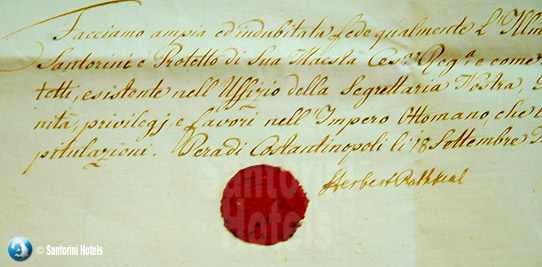 Facciamo ampia ed indubitata fede qualmente L'Illm
Santorini è Protetto di Sua Maestà Ces.ª Reg.ª e come
tetti, esistente nell'Uffizio della Segrettaria Nostra,
nità, privilegj, e favori nell'Impero Ottomano, che
pitulazioni. Pera di Costantinopoli li 18 Settembre
Herbert Rathkeal
Santorini
Hotels
© Santorini Hotels